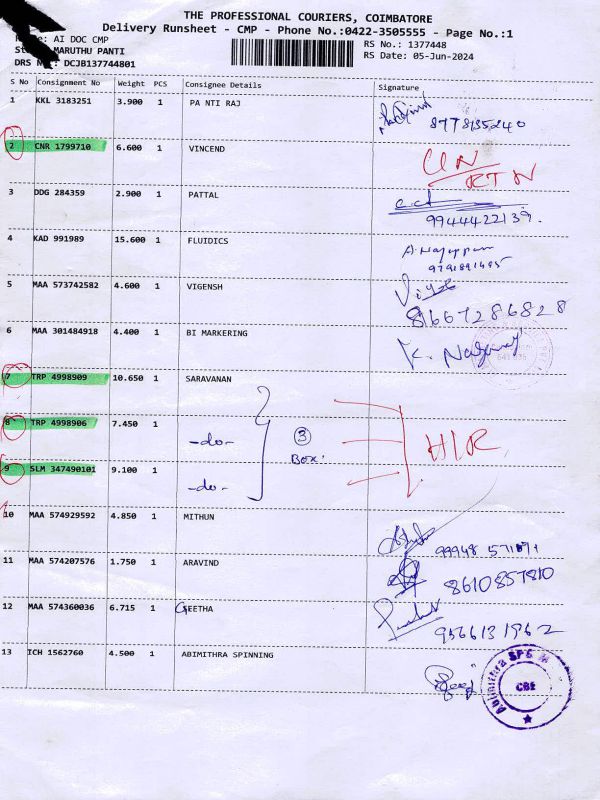 THE PROFESSIONAL COURIERS, COIMBATORE
Delivery Runsheet - CMP - Phone No.:0422-3505555 - Page No.:1
: AI DOC CMP
RS No.: 1377448
MARUTHU PANTI
RS Date: 05-Jun-2024
DRS No.: DCJB137744801
S No Consignment No Weight PCS Consignee Details Signature
1 KKL 3183251 3.900 1 PA NTI RAJ
8778135240
2 CNR 1799710 6.600 1 VINCEND
UN
RTN
3 DDG 284359 2.900 1 PATTAL
9944422139.
4 KAD 991989 15.600 1 FLUIDICS
9791891495
5 MAA 573742582 4.600 1 VIGENSH
81667286828
6 MAA 301484918 4.400 1 BI MARKERING
7 TRP 4998909 10.650 1 SARAVANAN
8 TRP 4998906 7.450 1 -do- 3 Box. HLR
9 SLM 347490101 9.100 1 -do-
10 MAA 574929592 4.850 1 MITHUN
99948 571091
11 MAA 574207576 1.750 1 ARAVIND
8610857810
12 MAA 574360036 6.715 1 GEETHA
9566131962
13 ICH 1562760 4.500 1 ABIMITHRA SPINNING
CBE